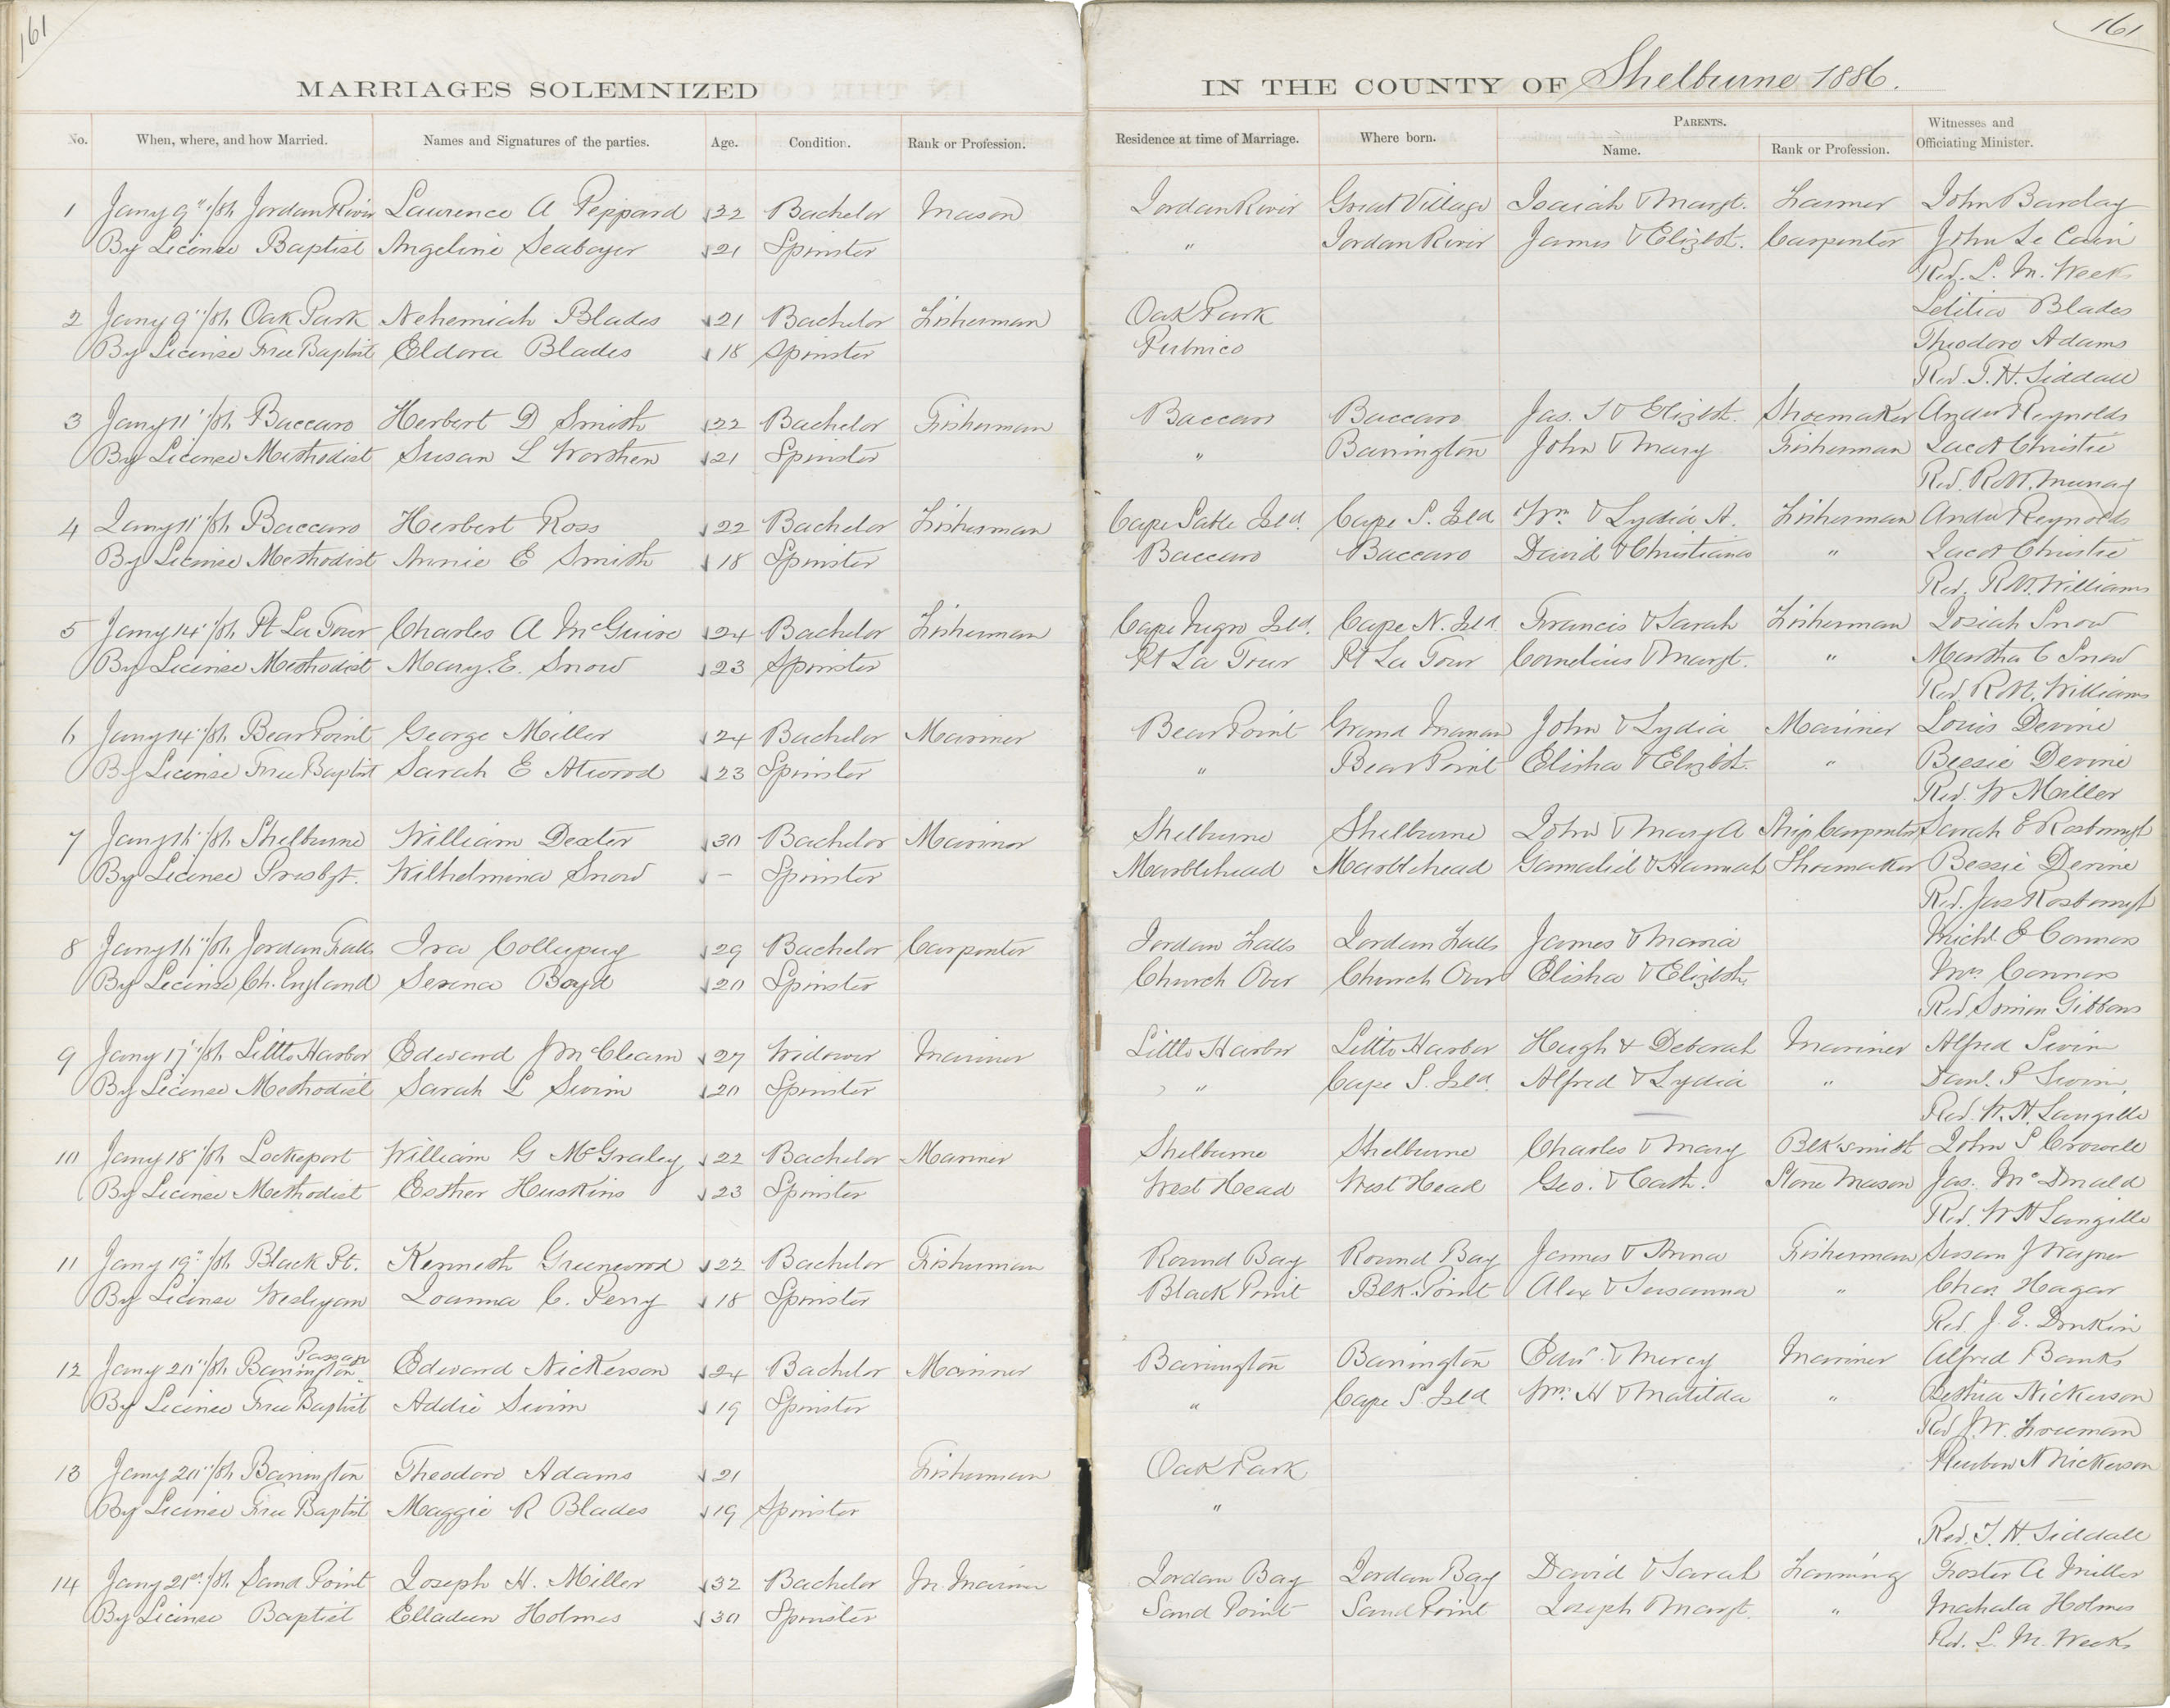 161
161
MARRIAGES SOLEMNIZED IN THE COUNTY OF Shelburne 1886.
No. When, where, and how Married. Names and Signatures of the parties. Age. Condition. Rank or Profession. Residence at time of Marriage. Where born. PARENTS. Name. Rank or Profession. Witnesses and Officiating Minister.
1 Jany 9" /86 Jordan River Laurence A Peppard 32 Bachelor Mason Jordan River Great Village Isaiah & Margt. Farmer John Barclay
By License Baptist Angeline Seaboyer 21 Spinster " Jordan River James & Elizbt. Carpenter John Le Cain
Rev. L. M. Weeks
2 Jany 9" /86 Oak Park Nehemiah Blades 21 Bachelor Fisherman Oak Park Letitia Blades
By License Free Baptist Eldora Blades 18 Spinster Pubnico Theodore Adams
Rev. T. H. Siddall
3 Jany 11" /86 Baccaro Herbert D Smith 22 Bachelor Fisherman Baccaro Baccaro Jas. S & Elizbt. Shoemaker Andw Reynolds
By License Methodist Susan L Worthen 21 Spinster " Barrington John & Mary Fisherman Jacob Christie
Rev. R. W. Murray
4 Jany 11" /86 Baccaro Herbert Ross 22 Bachelor Fisherman Cape Sable Isld. Cape S. Isld Wm. & Lydia A. Fisherman Andw Reynolds
By License Methodist Annie E Smith 18 Spinster Baccaro Baccaro David & Christiana " Jacob Christie
Rev. R. W. Williams
5 Jany 14" /86 Pt La Tour Charles A McGuire 24 Bachelor Fisherman Cape Negro Isld. Cape N. Isld Francis & Sarah Fisherman Josiah Snow
By License Methodist Mary. E. Snow 23 Spinster Pt La Tour Pt La Tour Cornelius & Margt. " Martha C Snow
Rev. R. W. Williams
6 Jany 14" /86 Bear Point George Miller 24 Bachelor Mariner Bear Point Grand Manan John & Lydia Mariner Louis Devine
By License Free Baptist Sarah E Atwood 23 Spinster " Bear Point Elisha & Elizbt. " Bessie Devine
Rev. W Miller
7 Jany 16" /86 Shelburne William Dexter 30 Bachelor Mariner Shelburne Shelburne John & Mary A Ship Carpenter Sarah E Rosborough
By License Presbyt. Wilhelmina Snow - Spinster Marblehead Marblehead Gamaliel & Hannah Shoemaker Bessie Devine
Rev. Jas Rosborough
8 Jany 16" /86 Jordan Falls Ira Collupuy 29 Bachelor Carpenter Jordan Falls Jordan Falls James & Maria Michl. O Connors
By License Ch. England Serena Boyd 20 Spinster Church Over Church Over Elisha & Elizbth. Mrs Connors
Rev Simon Gibbons
9 Jany 17" /86 Little Harbor Edward J McClearn 27 Widower Mariner Little Harbor Little Harbor Hugh & Deborah Mariner Alfred Swim
By License Methodist Sarah L Swim 20 Spinster " Cape S. Isld. Alfred & Lydia " Danl. P Swim
Rev. W. H. Langille
10 Jany 18" /86 Lockeport William G McGraley 22 Bachelor Mariner Shelburne Shelburne Charles & Mary Blk'smith John P Crowell
By License Methodist Esther Huskins 23 Spinster West Head West Head Geo. & Cath. Stone Mason Jas. McDonald
Rev. W H Langille
11 Jany 19" /86 Black Pt. Kenneth Greenwood 22 Bachelor Fisherman Round Bay Round Bay James & Anna Fisherman Susan J Wagner
By License Wesleyan Joanna C. Perry 18 Spinster Black Point Blk. Point Alex & Susanna " Chas. Hagar
Rev J. E. Donkin
12 Jany 20" /86 Barrington Passage Edward Nickerson 24 Bachelor Mariner Barrington Barrington Edwd. & Mercy Mariner Alfred Banks
By License Free Baptist Addie Swim 19 Spinster " Cape S. Isld Wm. H & Matilda " Bethia Nickerson
Rev J. W. Freeman
13 Jany 20" /86 Barrington Theodore Adams 21 Fisherman Oak Park Reuben N Nickerson
By License Free Baptist Maggie R Blades 19 Spinster "
Rev. T. H. Siddall
14 Jany 21st /86 Sand Point Joseph H. Miller 32 Bachelor M. Mariner Jordan Bay Jordan Bay David & Sarah Farming Foster A Miller
By License Baptist Elladeen Holmes 30 Spinster Sand Point Sand Point Joseph & Margt. " Mahala Holmes
Rev. L. M. Weeks